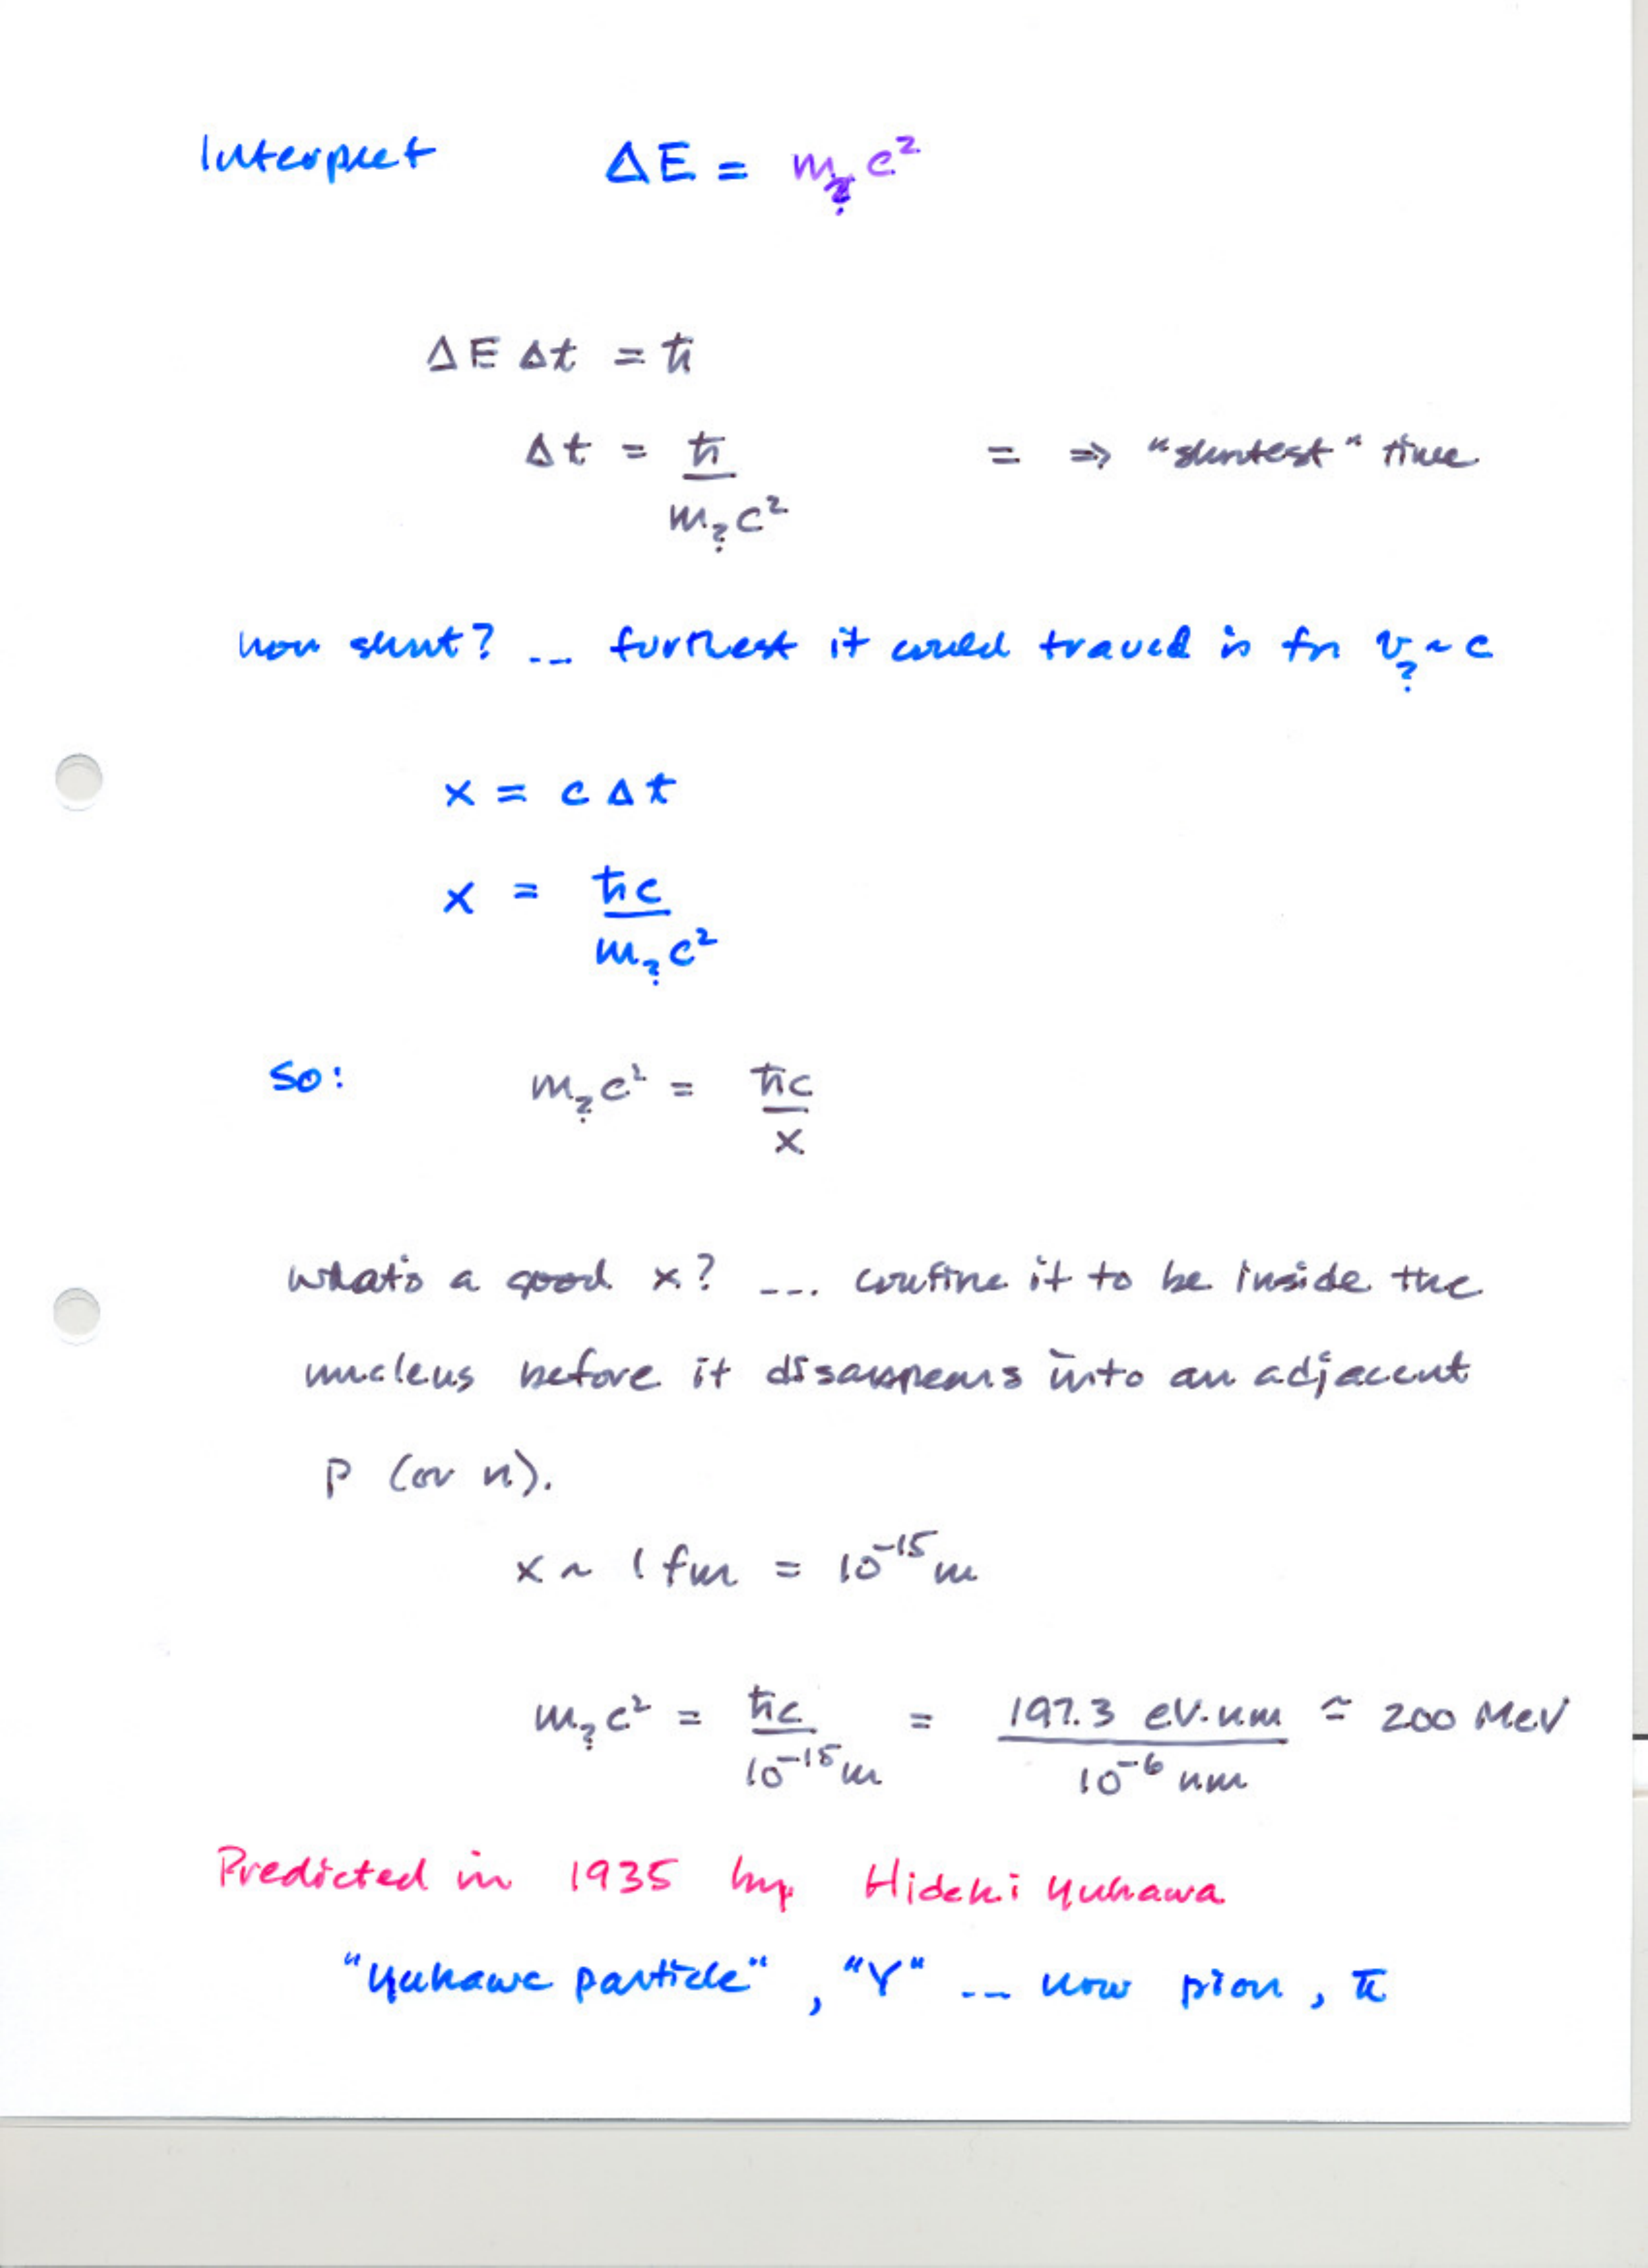 Interpret ΔE = m?c²
ΔE Δt = ħ
Δt = ħ / m?c² = ⇒ "shortest" time
how short? ... furthest it could travel is for v? ~ c
x = c Δt
x = ħc / m?c²
So: m?c² = ħc / x
what's a good x? ... confine it to be inside the
nucleus before it disappears into an adjacent
p (or n).
x ~ 1 fm = 10⁻¹⁵ m
m?c² = ħc / 10⁻¹⁵ m = 197.3 eV·nm / 10⁻⁶ nm ≃ 200 MeV
Predicted in 1935 by Hideki Yukawa
"Yukawa particle", "Y" ... now pion, π